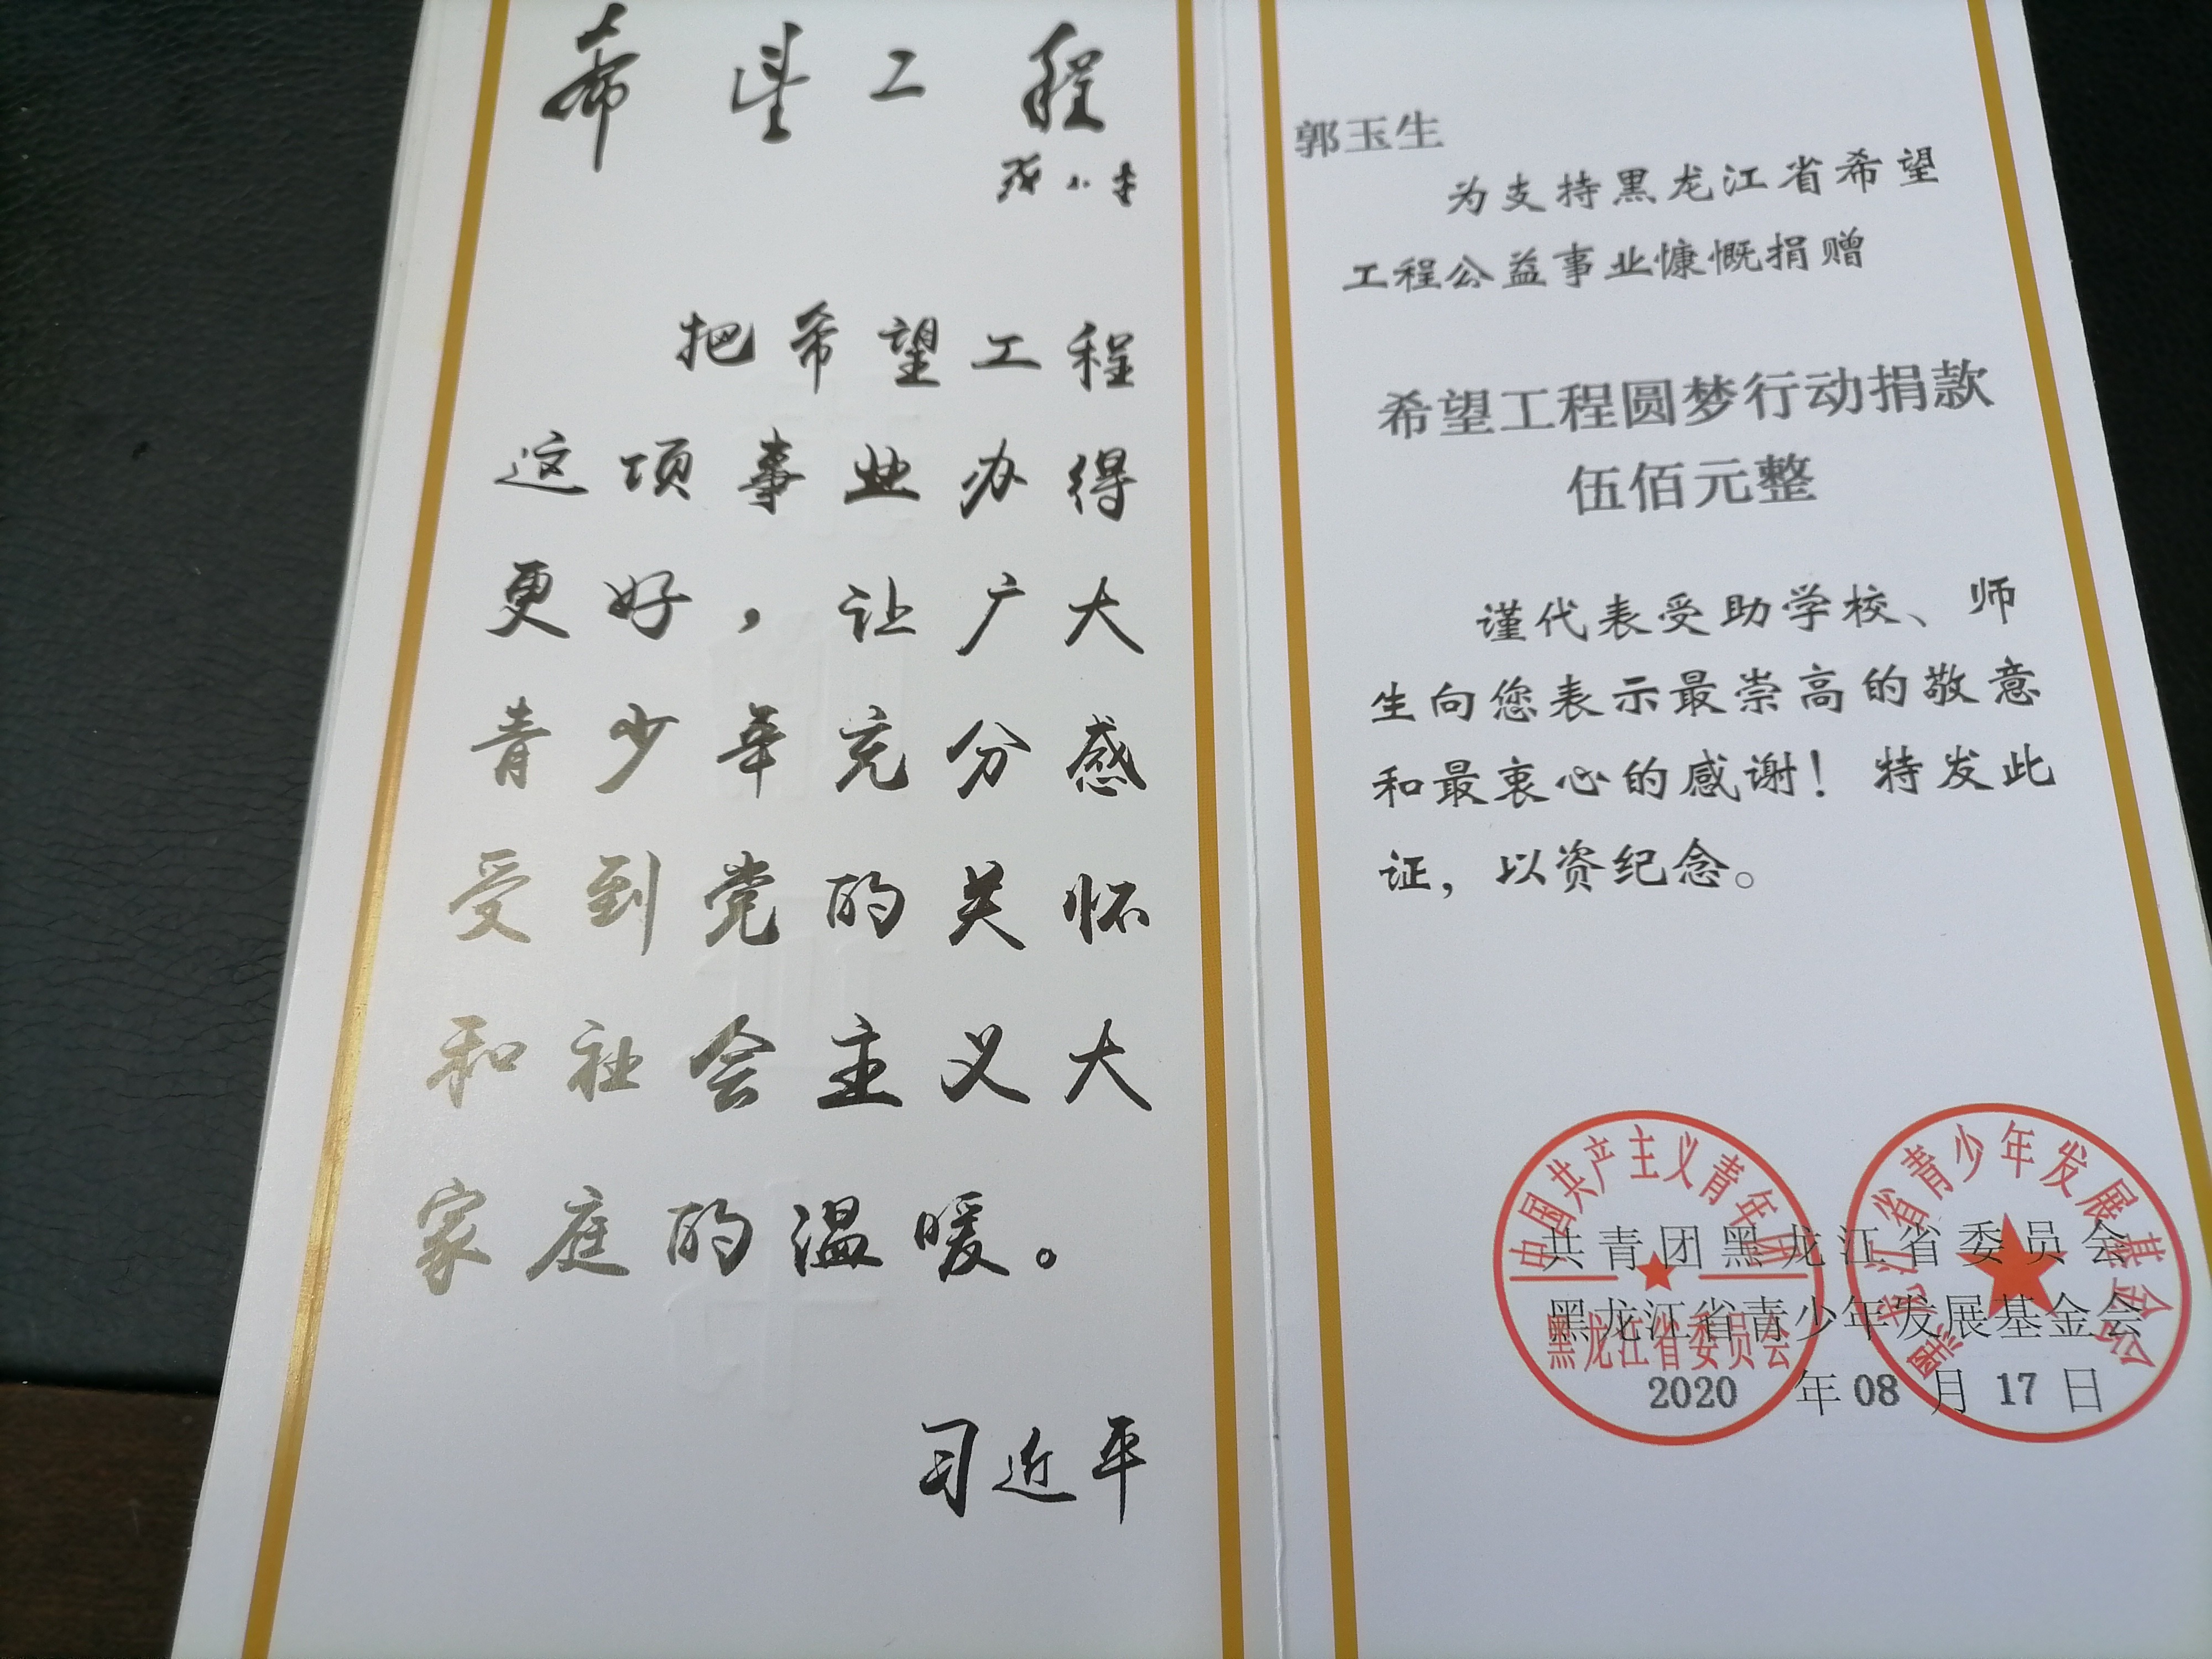 希望工程
邓小平
把希望工程
这项事业办得
更好，让广大
青少年充分感
受到党的关怀
和社会主义大
家庭的温暖。
习近平
郭玉生
为支持黑龙江省希望
工程公益事业慷慨捐赠
希望工程圆梦行动捐款
伍佰元整
谨代表受助学校、师
生向您表示最崇高的敬意
和最衷心的感谢！特发此
证，以资纪念。
共青团黑龙江省委员会
黑龙江省青少年发展基金会
2020 年 08 月 17 日
中国共产主义青年团
黑龙江省委员会
黑龙江省青少年发展基金会